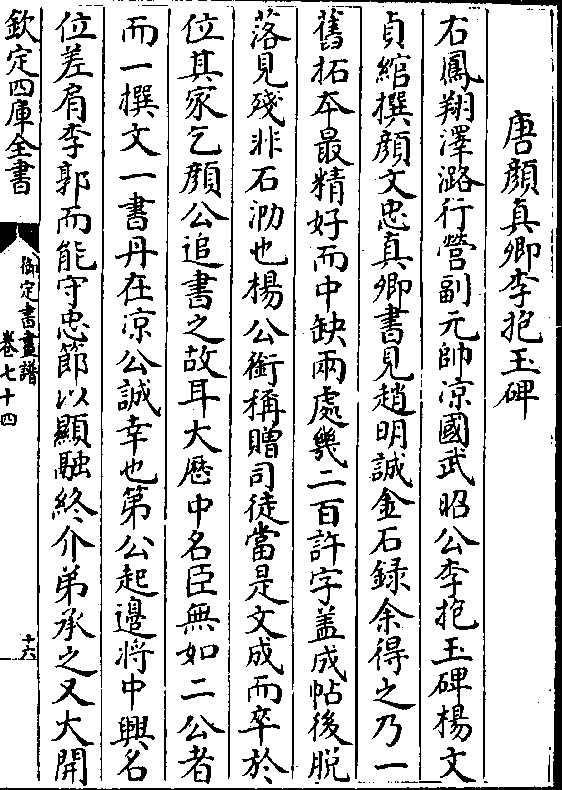 唐顔真卿李抱玉碑
右鳳翔澤潞行營副元帥凉國武昭公李抱玉碑楊文
貞綰撰顔文忠真卿書見趙明誠金石録余得之乃一
舊拓本最精好而中缺兩處幾二百許字盖成帖後脱
落見殘非石泐也楊公銜稱贈司徒當是文成而卒於
位其家乞顔公追書之故耳大厯中名臣無如二公者
而一撰文一書丹在凉公誠幸也第公起邊將中興名
位差肩李郭而能守忠節以顯融終介弟承之又大開
欽定四庫全書
御定書畫譜
卷七十四
十六